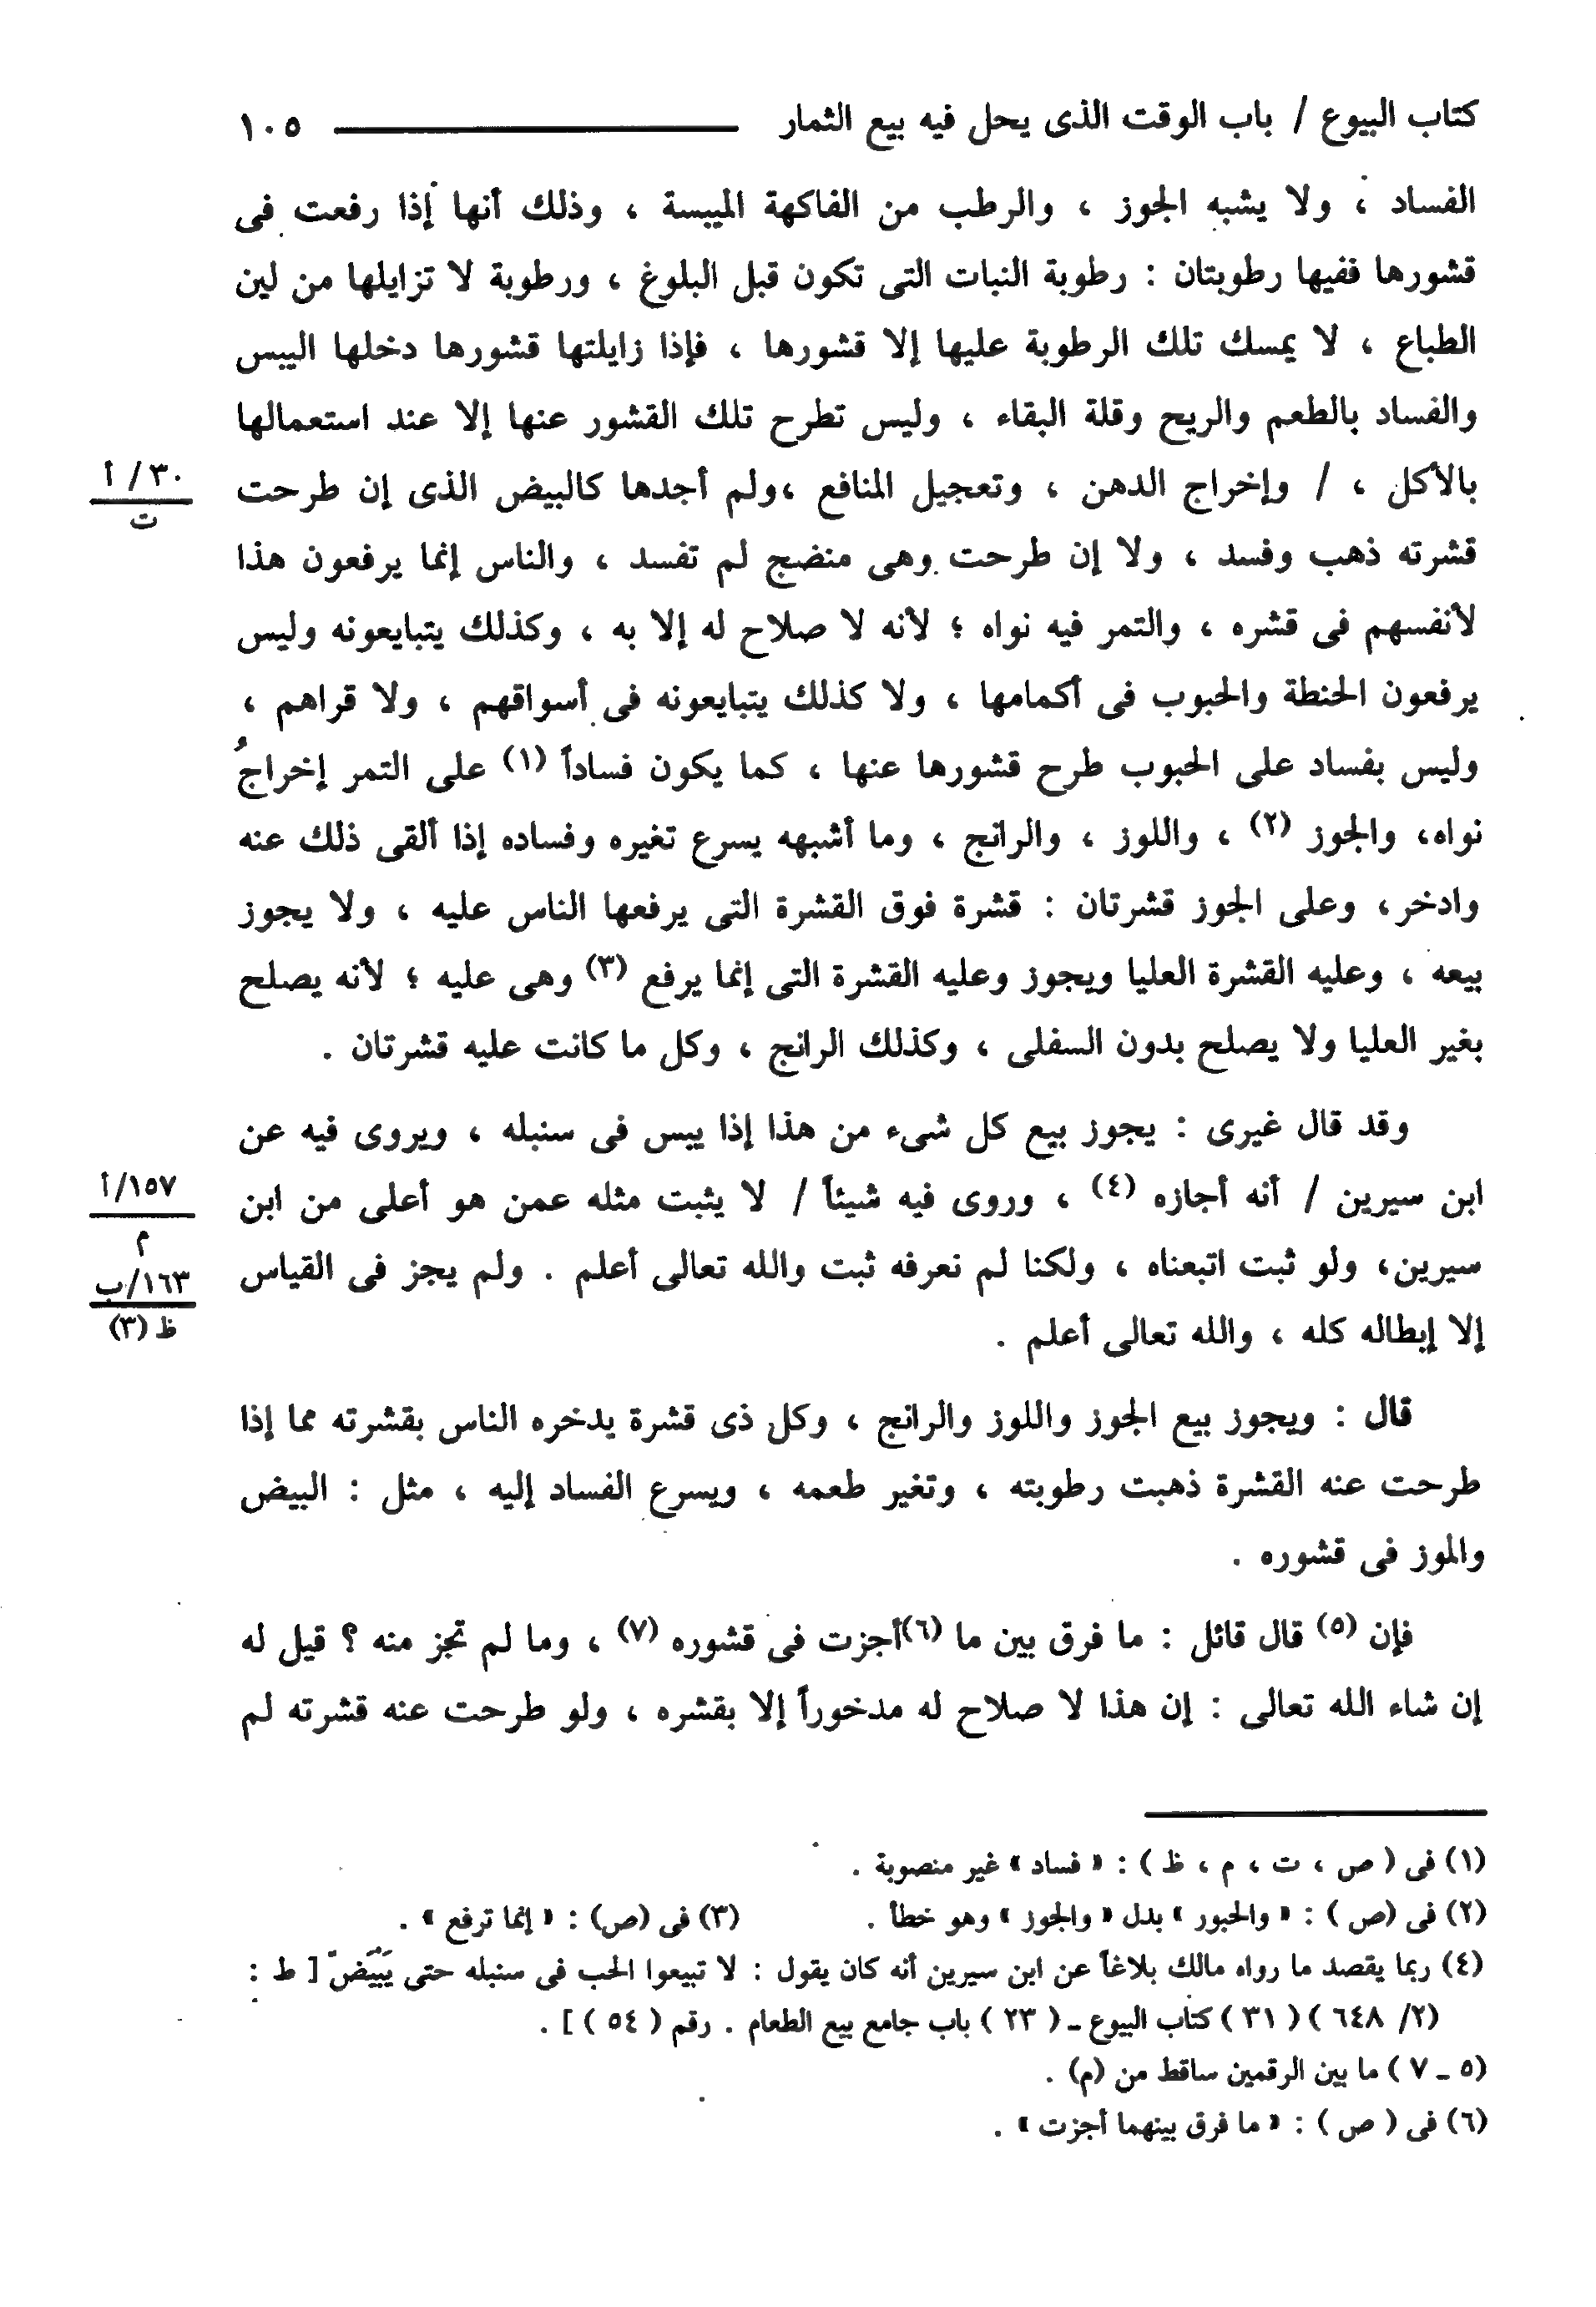 كتاب البيوع / باب الوقت الذى يحل فيه بيع الثمار ١٠٥
الفساد ، ولا يشبه الجوز ، والرطب من الفاكهة الميبسة ، وذلك أنها إذا رفعت فى
قشورها ففيها رطوبتان : رطوبة النبات التى تكون قبل البلوغ ، ورطوبة لا تزايلها من لين
الطباع ، لا يمسك تلك الرطوبة عليها إلا قشورها ، فإذا زايلتها قشورها دخلها اليبس
والفساد بالطعم والريح وقلة البقاء ، وليس تطرح تلك القشور عنها إلا عند استعمالها
بالأكل ، / وإخراج الدهن ، وتعجيل المنافع ،ولم أجدها كالبيض الذى إن طرحت
٣٠ / أ
ت
قشرته ذهب وفسد ، ولا إن طرحت وهى منضج لم تفسد ، والناس إنما يرفعون هذا
لأنفسهم فى قشره ، والتمر فيه نواه ؛ لأنه لا صلاح له إلا به ، وكذلك يتبايعونه وليس
يرفعون الحنطة والحبوب فى أكمامها ، ولا كذلك يتبايعونه فى أسواقهم ، ولا قراهم ،
وليس بفساد على الحبوب طرح قشورها عنها ، كما يكون فساداً (١) على التمر إخراجُ
نواه، والجوز (٢) ، واللوز ، والرانج ، وما أشبهه يسرع تغيره وفساده إذا ألقى ذلك عنه
وادخر، وعلى الجوز قشرتان : قشرة فوق القشرة التى يرفعها الناس عليه ، ولا يجوز
بيعه ، وعليه القشرة العليا ويجوز وعليه القشرة التى إنما يرفع (٣) وهى عليه ؛ لأنه يصلح
بغير العليا ولا يصلح بدون السفلى ، وكذلك الرانج ، وكل ما كانت عليه قشرتان .
وقد قال غيرى : يجوز بيع كل شىء من هذا إذا يبس فى سنبله ، ويروى فيه عن
ابن سيرين / أنه أجازه (٤) ، وروى فيه شيئاً / لا يثبت مثله عمن هو أعلى من ابن
١٥٧/أ
م
سيرين، ولو ثبت اتبعناه ، ولكنا لم نعرفه ثبت والله تعالى أعلم . ولم يجز فى القياس
١٦٣/ب
ظ (٣)
إلا إبطاله كله ، والله تعالى أعلم .
قال : ويجوز بيع الجوز واللوز والرانج ، وكل ذى قشرة يدخره الناس بقشرته مما إذا
طرحت عنه القشرة ذهبت رطوبته ، وتغير طعمه ، ويسرع الفساد إليه ، مثل : البيض
والموز فى قشوره .
فإن (٥) قال قائل : ما فرق بين ما (٦)أجزت فى قشوره (٧) ، وما لم تجز منه ؟ قيل له
إن شاء الله تعالى : إن هذا لا صلاح له مدخوراً إلا بقشره ، ولو طرحت عنه قشرته لم
(١) فى ( ص ، ت ، م ، ظ ) : « فساد » غير منصوبة .
(٢) فى (ص ) : « والحبور » بدل « والجوز » وهو خطأ . (٣) فى (ص) : « إنما ترفع » .
(٤) ربما يقصد ما رواه مالك بلاغاً عن ابن سيرين أنه كان يقول : لا تبيعوا الحب فى سنبله حتى يَبْيَضّ [ ط :
(٢/ ٦٤٨ ) ( ٣١ ) كتاب البيوع ـ ( ٢٣ ) باب جامع بيع الطعام . رقم ( ٥٤ ) ] .
(٥ ـ ٧ ) ما بين الرقمين ساقط من (م) .
(٦) فى ( ص ) : « ما فرق بينهما أجزت » .